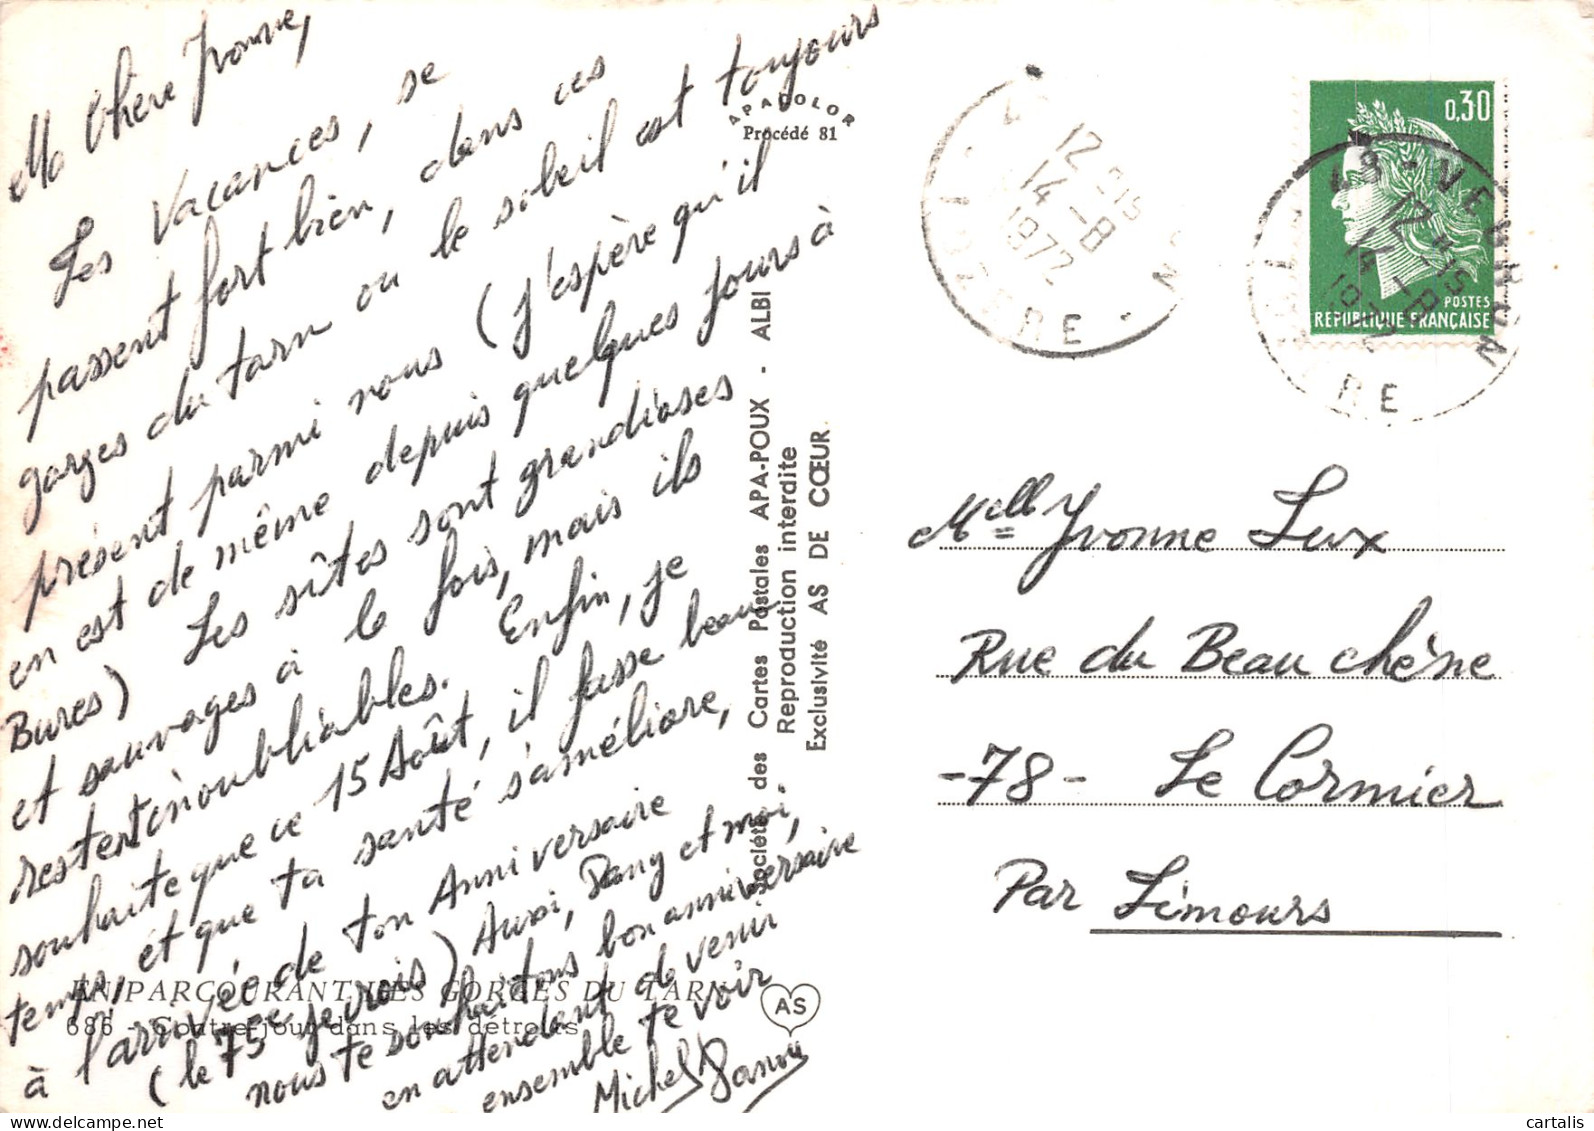 Ma Chère Yvonne,
Les Vacances, se
passent fort bien, dans ces
gorges du tarn ou le soleil est toujours
présent parmi nous (j'espère qu'il
en est de même depuis quelques jours à
Bures) Les sîtes sont grandioses
et sauvages à la fois, mais ils
restent inoubliables. Enfin, je
souhaite que ce 15 Août, il fasse beau
temps, et que ta santé s'améliore,
à l'arrivée de ton Anniversaire
(le 75ème je crois) Aussi, Dany et moi,
nous te souhaitons bon anniversaire
en attendant de venir
ensemble te voir
Michel Dany
EN PARCOURANT LES GORGES DU TARN
686 - Contre-jour dans les détroits
APACOLOR
Procédé 81
Société des Cartes Postales APA-POUX - ALBI
Reproduction interdite
Exclusivité AS DE CŒUR
AS
12 H15
14 -8
1972
LOZERE
0,30
POSTES
REPUBLIQUE FRANÇAISE
48 - VEBRON
12 H15
14 -8
1972
LOZERE
Melle Yvonne Lux
Rue du Beau chêne
-78- Le Cormier
Par Limours
cartalis
delcampe.net